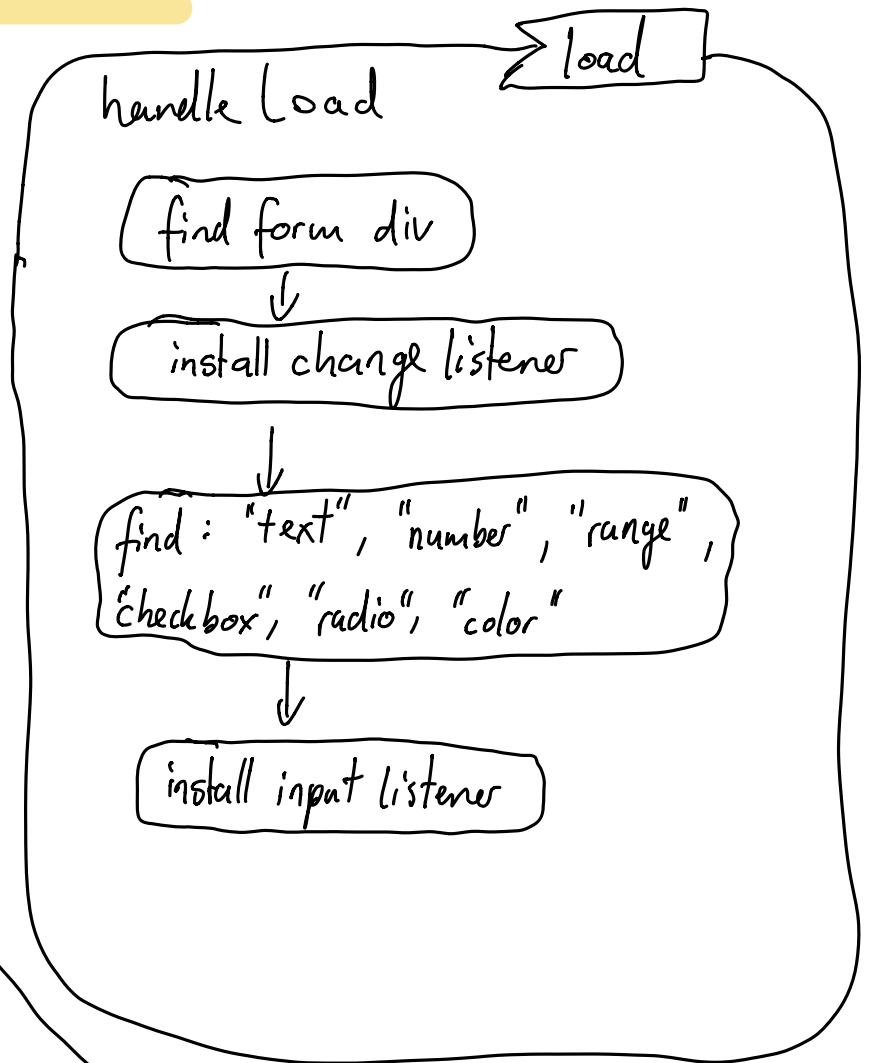 load
handle Load
find form div
install change listener
find : "text", "number", "range",
"checkbox", "radio", "color"
install input listener